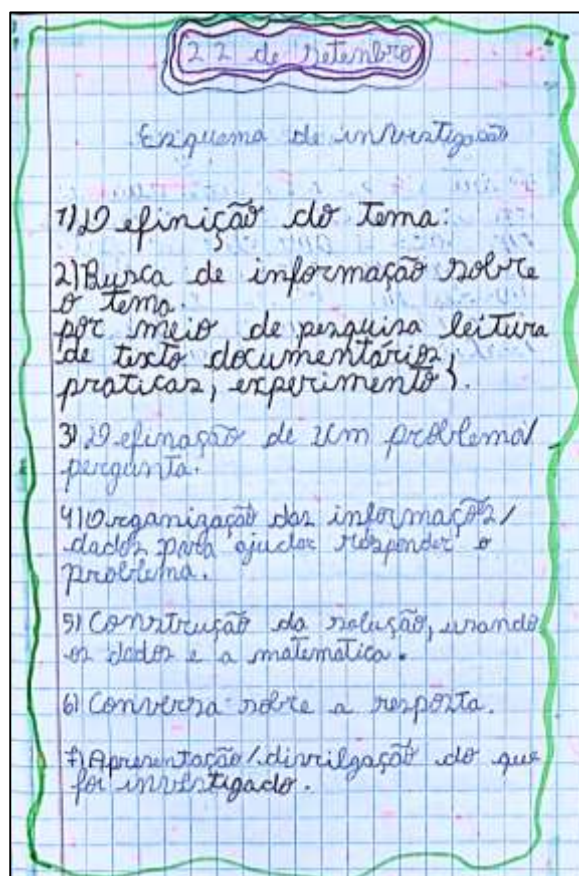 22 de setembro
Esquema de investigação
1) Definição do tema:
2) Busca de informação sobre
o tema.
por meio de pesquisa leitura
de texto documentários,
praticas, experimento}.
3) Definação de um problema/
pergunta.
4) Organização das informações/
dados para ajudar responder o
problema.
5) Construção da solução, usando
os dados e a matematica.
6) Conversa sobre a resposta.
7) Apresentação/divulgação do que
foi investigado.